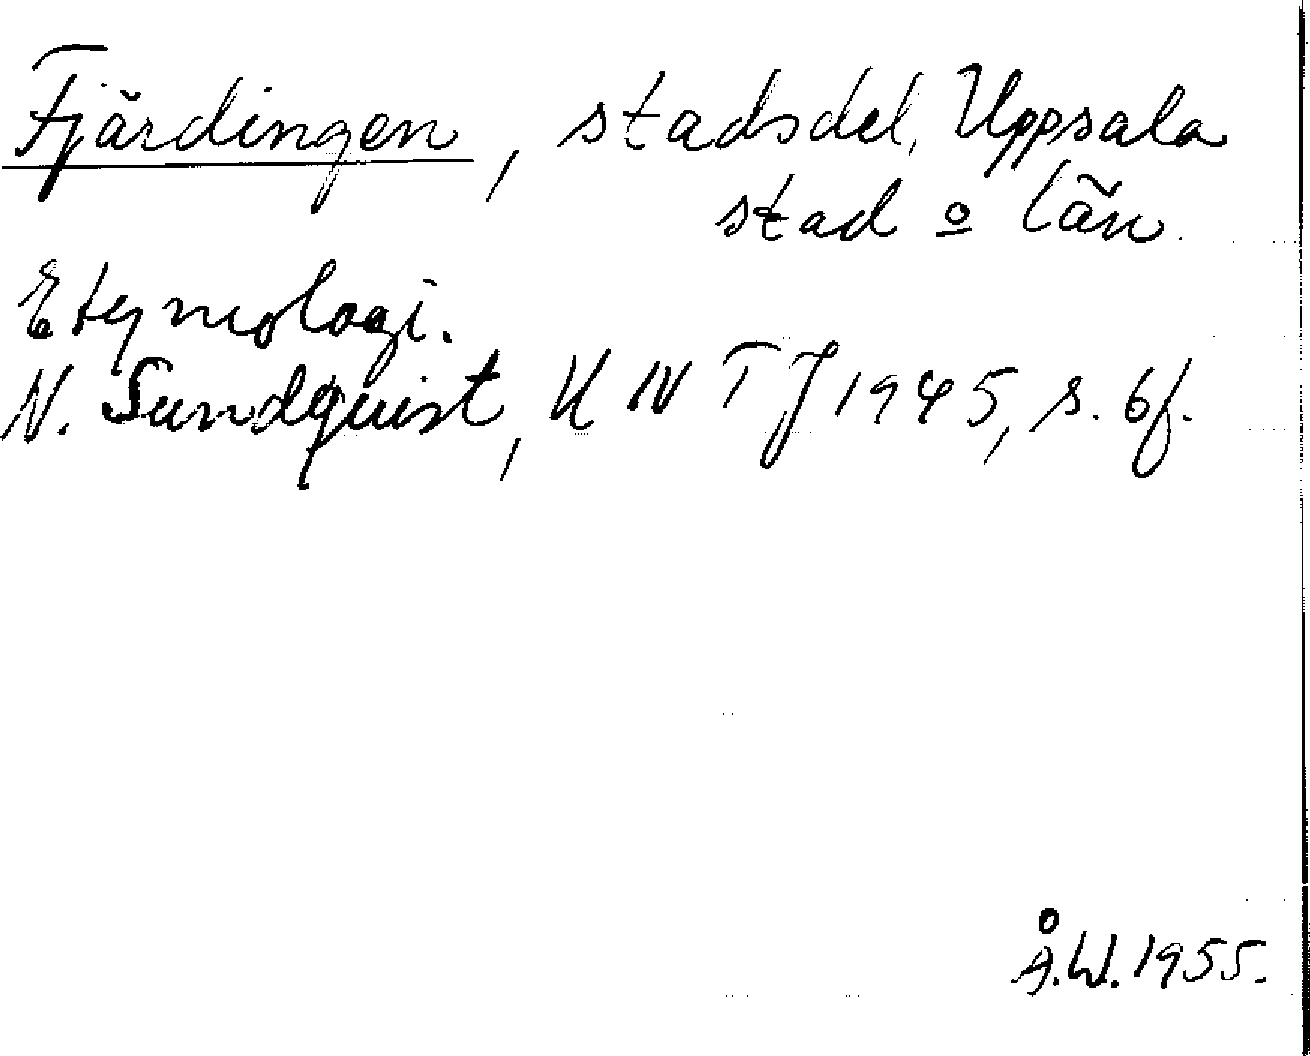 Fjärdingen, stadsdel, Uppsala
stad o län.
Etymologi.
N. Sundquist, UNTJ 1945, s. 6f.
Å.W. 1955.